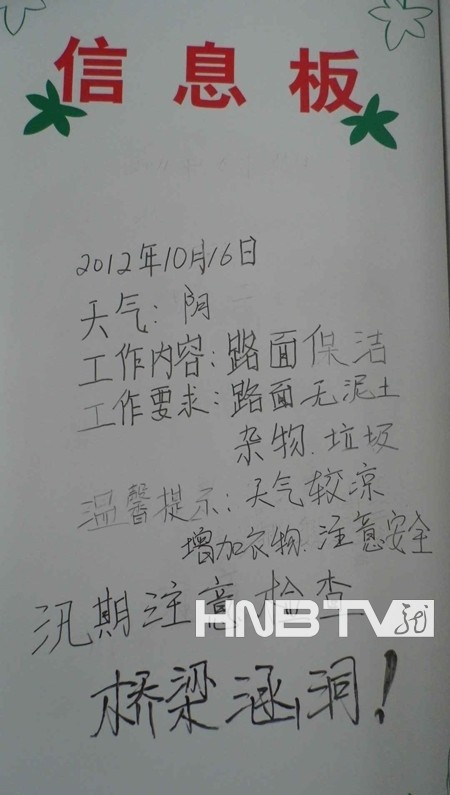 信息板
2012年10月16日
天气：阴
工作内容：路面保洁
工作要求：路面无泥土
杂物.垃圾
温馨提示：天气较凉
增加衣物.注意安全
汛期注意检查
HNBTV
桥梁涵洞！